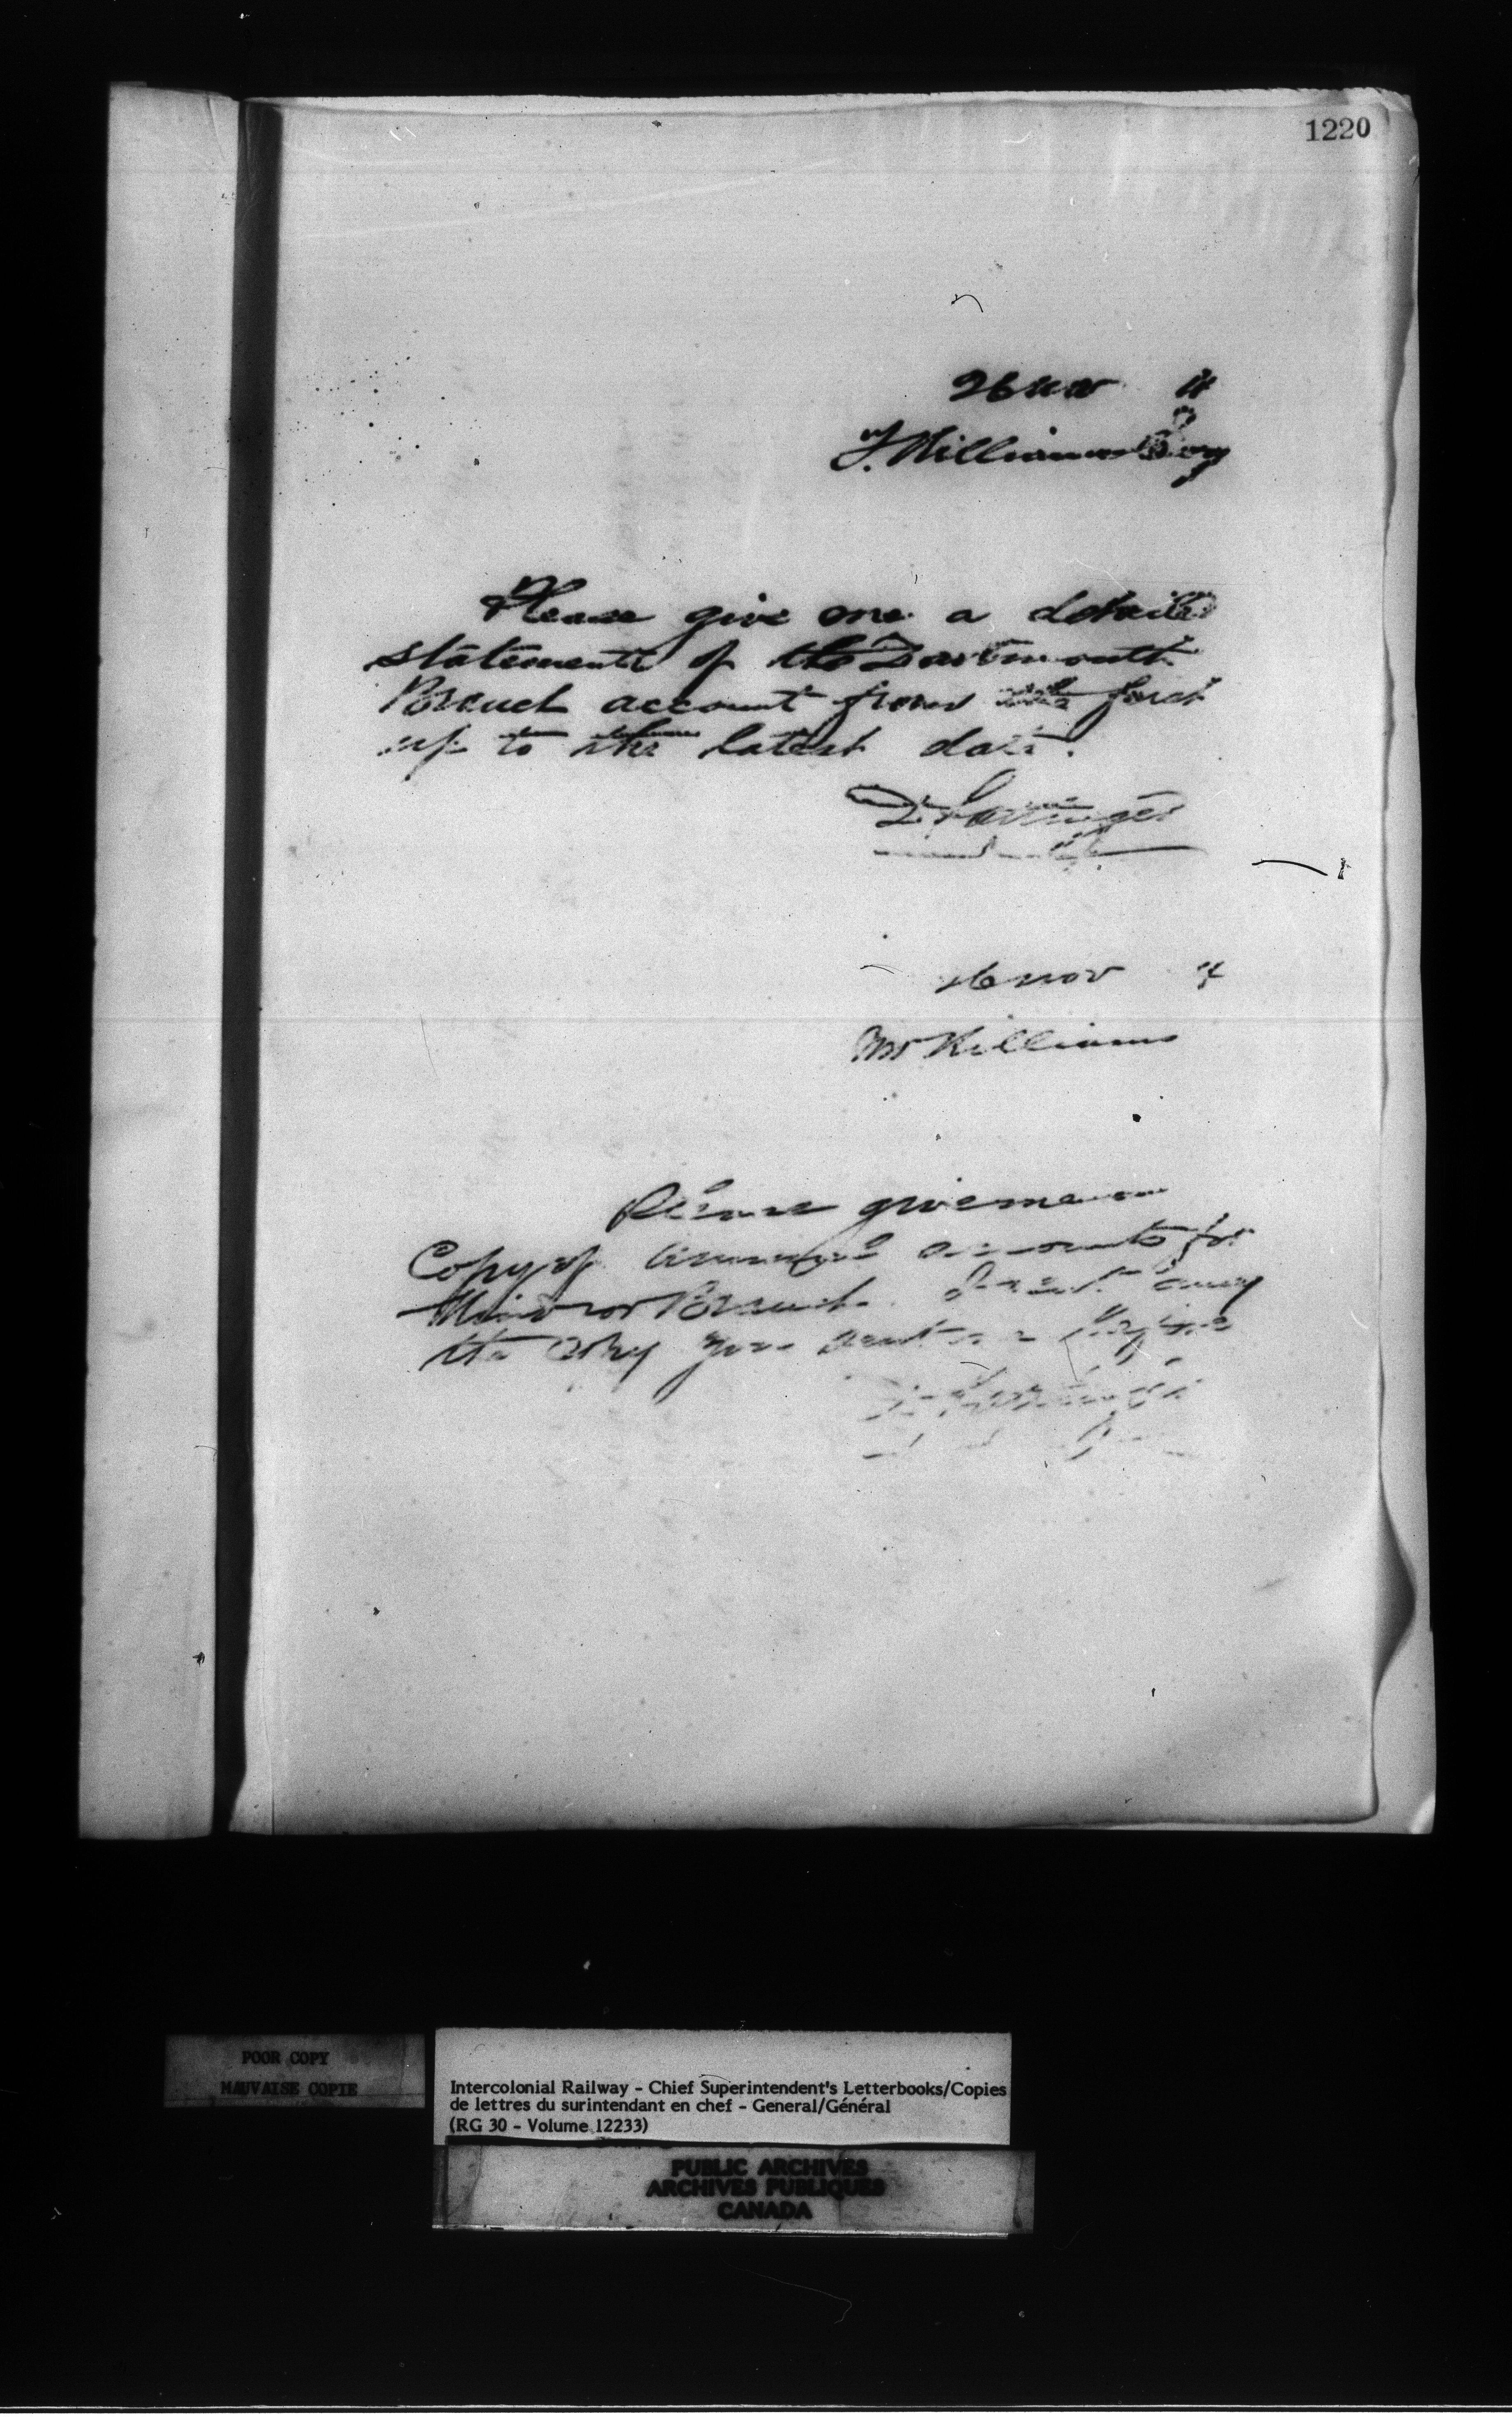 1220
26 Nov
T. Williams Esq
Please give me a detailed
statement of the Dartmouth
Branch account from the first
up to the latest date.
D Pottinger
26 Nov
Mr Williams
Please give me
Copy of accounts for
Windsor Branch.
the Copy you sent
POOR COPY
MAUVAISE COPIE
Intercolonial Railway - Chief Superintendent's Letterbooks/Copies
de lettres du surintendant en chef - General/Général
(RG 30 - Volume 12233)
PUBLIC ARCHIVES
ARCHIVES PUBLIQUES
CANADA